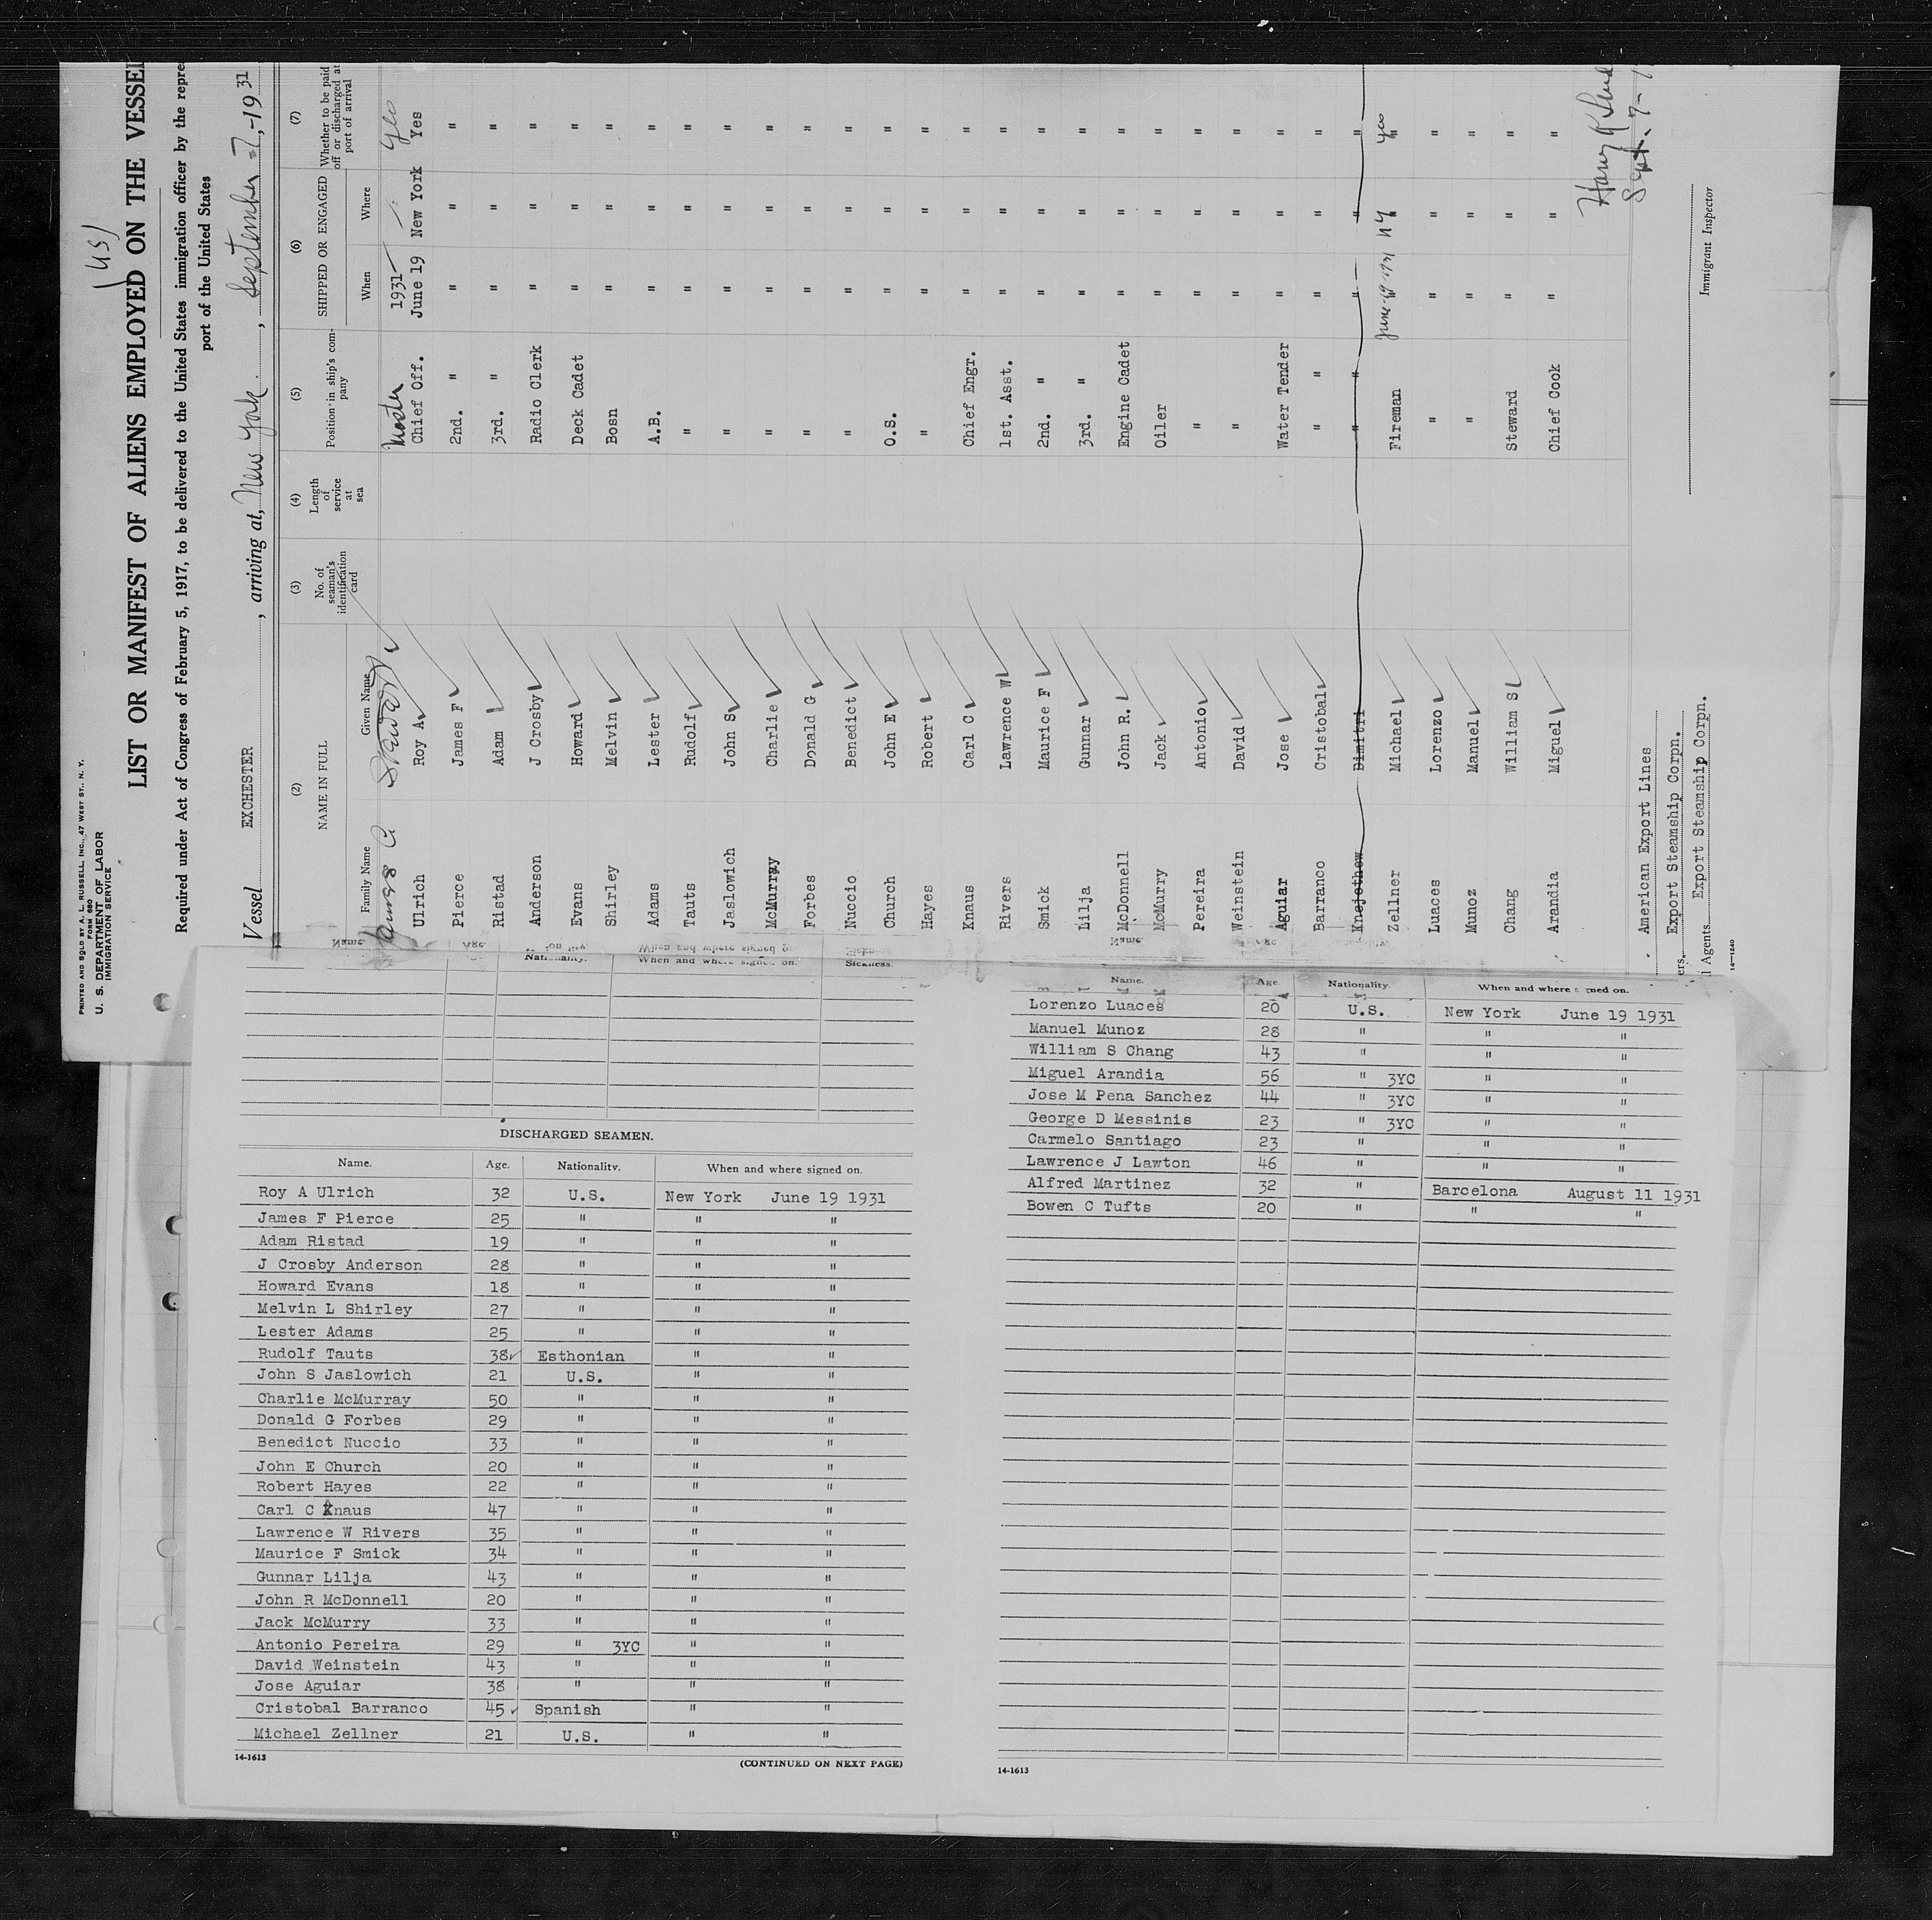 PRINTED AND SOLD BY A. L. RUSSELL, INC., 47 WEST ST., N. Y.
FORM 680
U. S. DEPARTMENT OF LABOR
IMMIGRATION SERVICE
(US)
LIST OR MANIFEST OF ALIENS EMPLOYED ON THE VESSEL
Required under Act of Congress of February 5, 1917, to be delivered to the United States immigration officer by the repre
port of the United States
Vessel EXCHESTER, arriving at, New York, September 7, -1931
(2) (3) (4) (5) (6) (7)
NAME IN FULL No. of seaman's identification card Length of service at sea Position in ship's company SHIPPED OR ENGAGED Whether to be paid off or discharged at port of arrival
Family Name Given Name When Where
Master 1931 Yes
Ulrich Roy A Chief Off. June 19 New York Yes
Pierce James F 2nd. " " " "
Ristad Adam 3rd. " " " "
Anderson J Crosby Radio Clerk " " "
Evans Howard Deck Cadet " " "
Shirley Melvin Bosn " " "
Adams Lester A.B. " " "
Tauts Rudolf " " " "
Jaslowich John S " " " "
McMurray Charlie " " " "
Forbes Donald G " " " "
Nuccio Benedict " " " "
Church John E O.S. " " "
Hayes Robert " " " "
Knaus Carl C Chief Engr. " " "
Rivers Lawrence W 1st. Asst. " " "
Smick Maurice F 2nd. " " " "
Lilja Gunnar 3rd. " " " "
McDonnell John R. Engine Cadet " " "
McMurry Jack Oiler " " "
Pereira Antonio " " " "
Weinstein David " " " "
Aguiar Jose Water Tender " " "
Barranco Cristobal " " " " "
Knejethew Dimitri " " " " "
Zellner Michael Fireman June 19 1931 NY yes
Luaces Lorenzo " " " "
Munoz Manuel " " " "
Chang William S Steward " " "
Arandia Miguel Chief Cook " " "
Sept. 7-
Immigrant Inspector
American Export Lines
Export Steamship Corpn.
ers.
Agents Export Steamship Corpn.
14-1240
Name. Age. Nationality. When and where signed on. Sickness.
DISCHARGED SEAMEN.
Name. Age. Nationality. When and where signed on.
Roy A Ulrich 32 U.S. New York June 19 1931
James F Pierce 25 " " "
Adam Ristad 19 " " "
J Crosby Anderson 28 " " "
Howard Evans 18 " " "
Melvin L Shirley 27 " " "
Lester Adams 25 " " "
Rudolf Tauts 38 Esthonian " "
John S Jaslowich 21 U.S. " "
Charlie McMurray 50 " " "
Donald G Forbes 29 " " "
Benedict Nuccio 33 " " "
John E Church 20 " " "
Robert Hayes 22 " " "
Carl C Knaus 47 " " "
Lawrence W Rivers 35 " " "
Maurice F Smick 34 " " "
Gunnar Lilja 43 " " "
John R McDonnell 20 " " "
Jack McMurry 33 " " "
Antonio Pereira 29 " 3YC " "
David Weinstein 43 " " "
Jose Aguiar 38 " " "
Cristobal Barranco 45 Spanish " "
Michael Zellner 21 U.S. " "
14-1613 (CONTINUED ON NEXT PAGE)
Name. Age Nationality. When and where signed on.
Lorenzo Luaces 20 U.S. New York June 19 1931
Manuel Munoz 28 " " "
William S Chang 43 " " "
Miguel Arandia 56 " 3YC " "
Jose M Pena Sanchez 44 " 3YC " "
George D Messinis 23 " 3YC " "
Carmelo Santiago 23 " " "
Lawrence J Lawton 46 " " "
Alfred Martinez 32 " Barcelona August 11 1931
Bowen C Tufts 20 " " "
14-1613